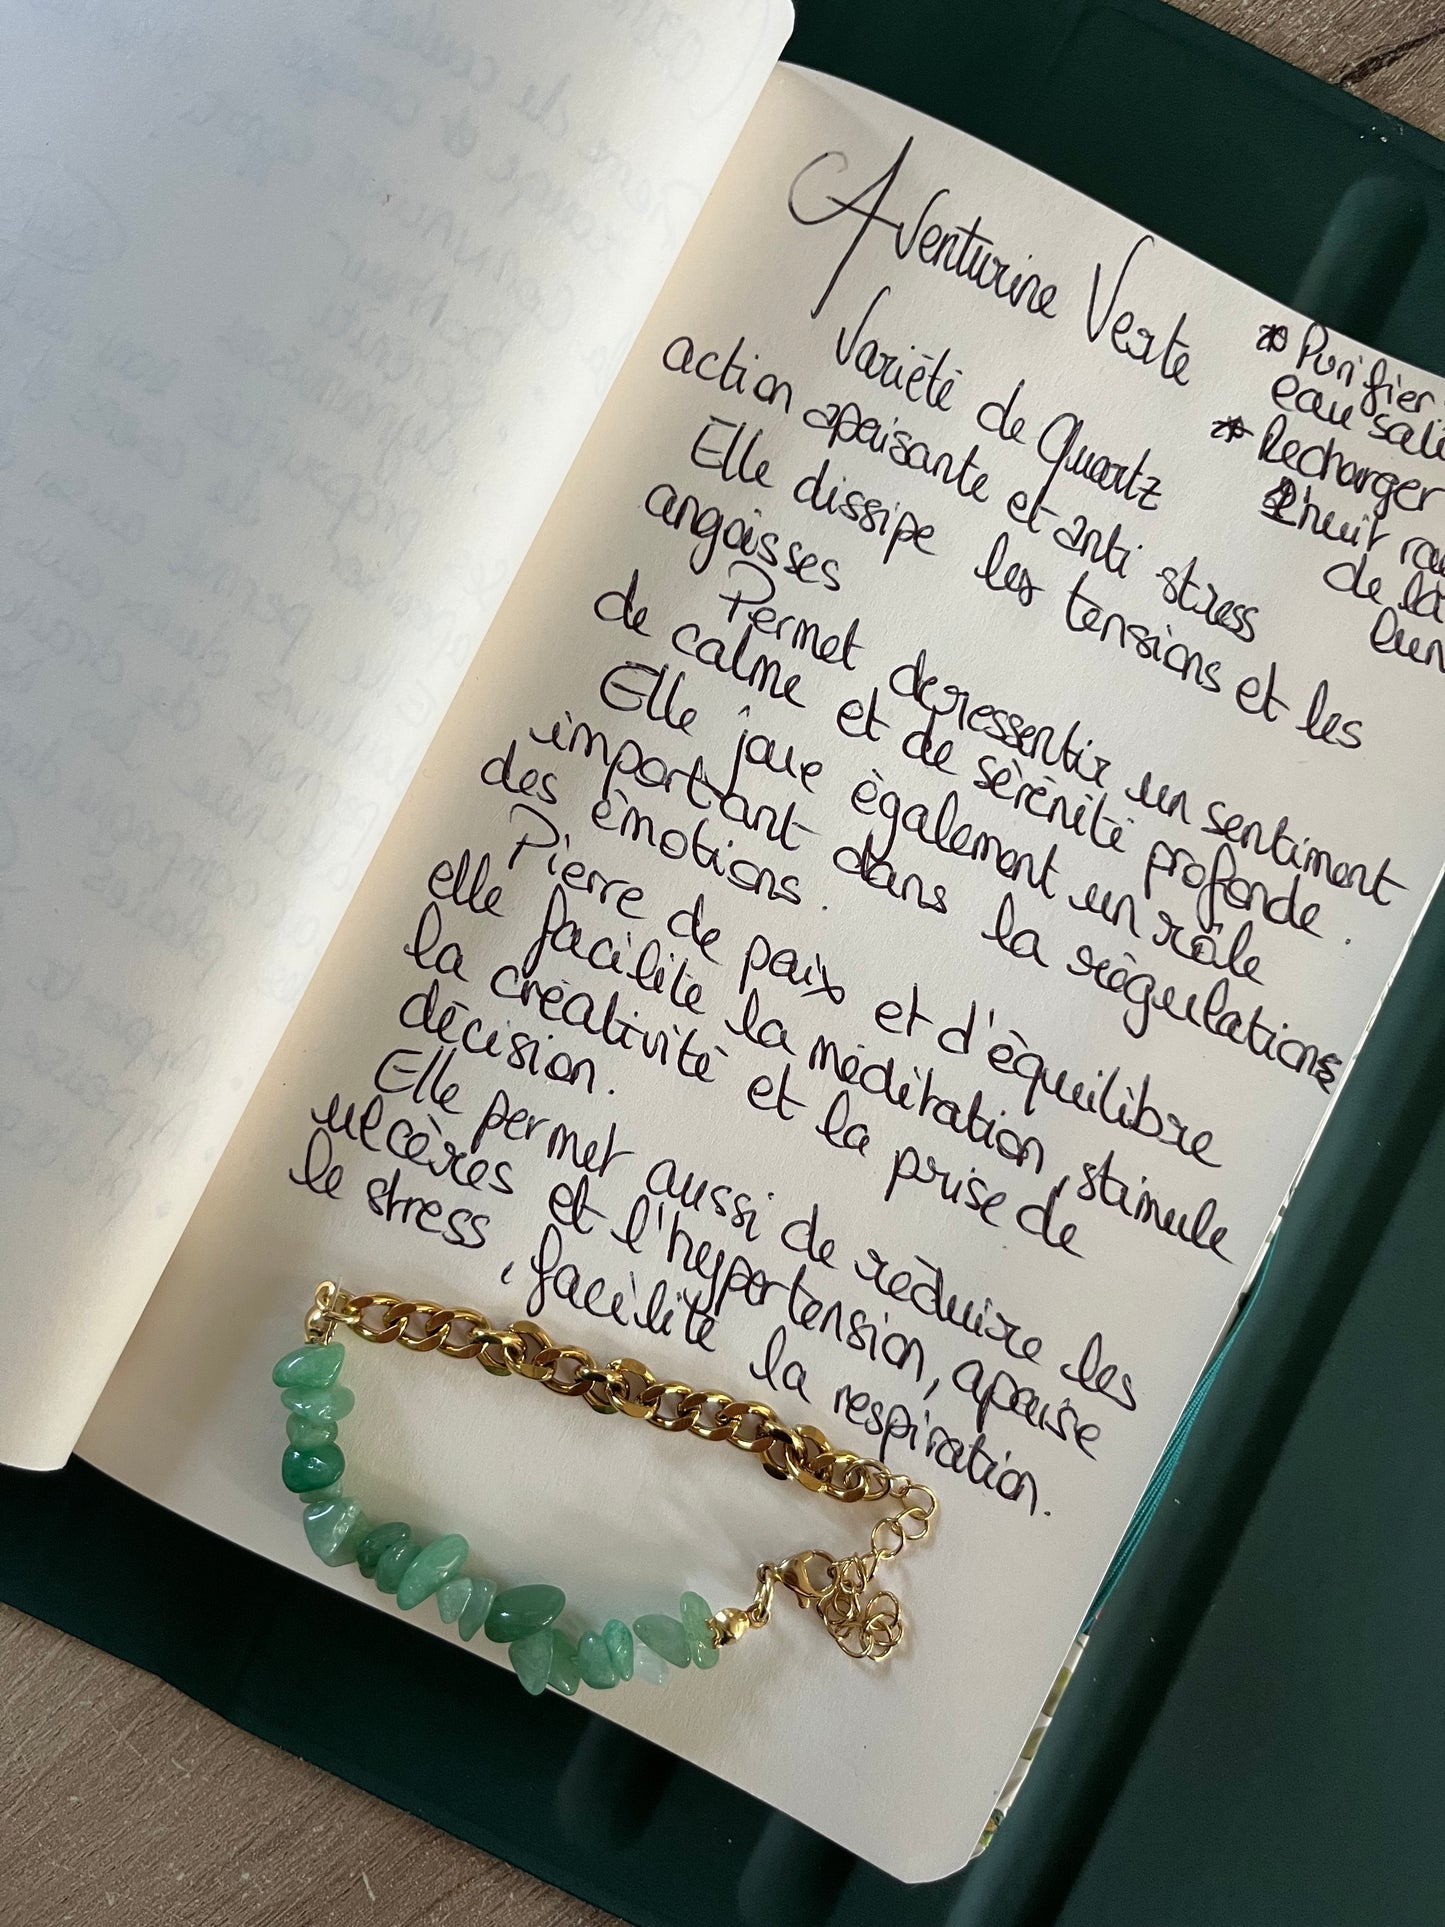 Aventurine Verte
Variété de Quartz
action apaisante et anti stress
Elle dissipe les tensions et les
angoisses
Permet de ressentir un sentiment
de calme et de sérénité profonde.
Elle joue également un rôle
important dans la régulations
des émotions.
Pierre de paix et d'équilibre
elle facilite la méditation, stimule
la créativité et la prise de
décision.
Elle permet aussi de réduire les
ulcères et l'hypertension, apaise
le stress, facilite la respiration.
* Purifier
eau salé
* Recharger
nuit
de la